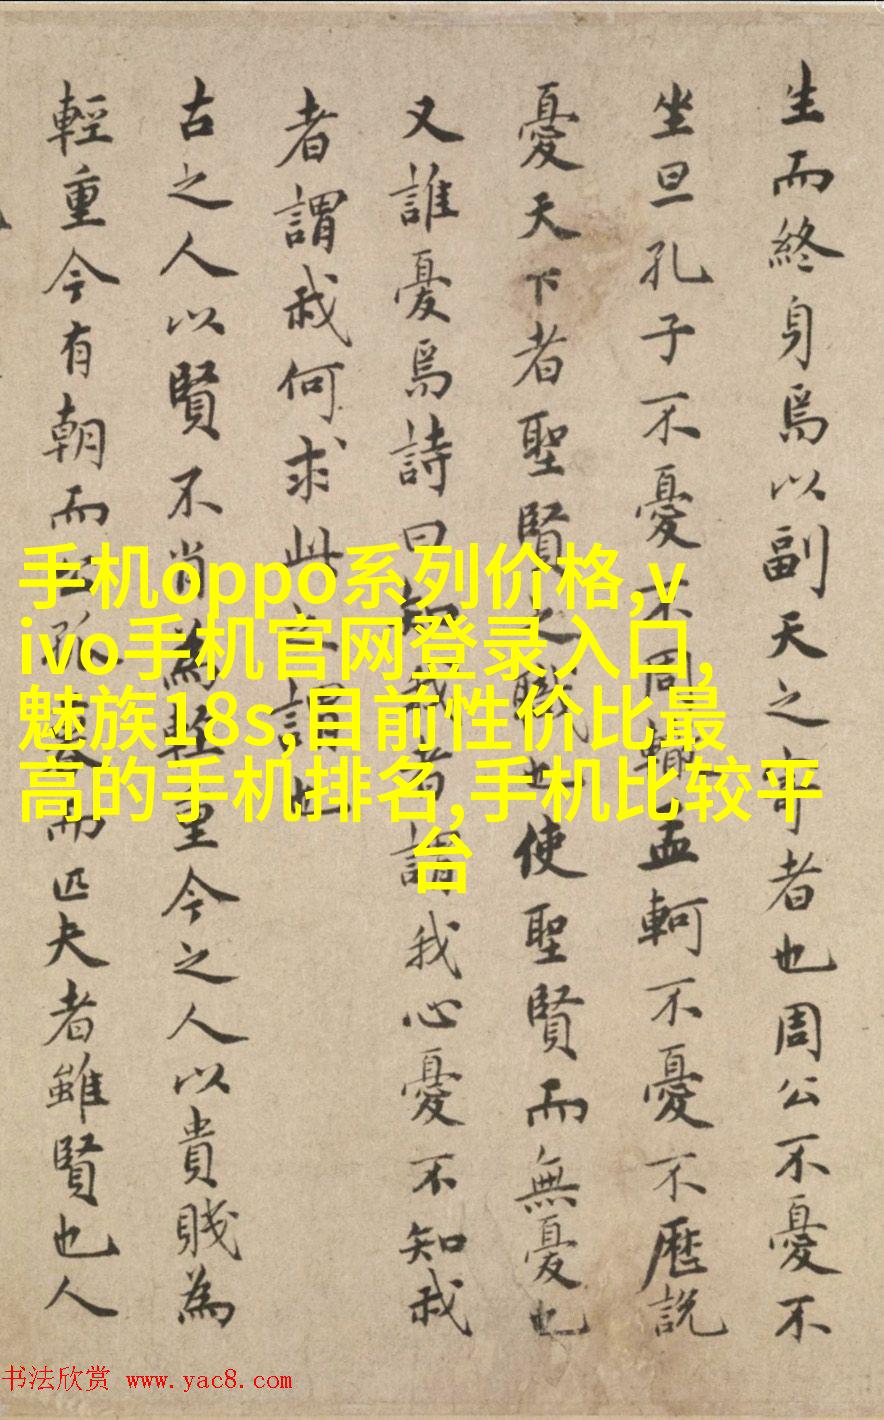 生而終身焉以副天之寄者也周公不憂不
坐旦孔子不憂不周轍孟軻不憂不歷說
憂天下者聖賢之職也使聖賢而無憂也
又誰憂焉詩曰知我者謂我心憂不知我
者謂我何求此之謂也
古之人以賢不肖為輕重今之人以貴賤為
輕重今有朝而公孤暮而匹夫者雖賢也人
手机oppo系列价格,v
ivo手机官网登录入口,
魅族18s,目前性价比最
高的手机排名,手机比较平
台
书法欣赏 www.yac8.com